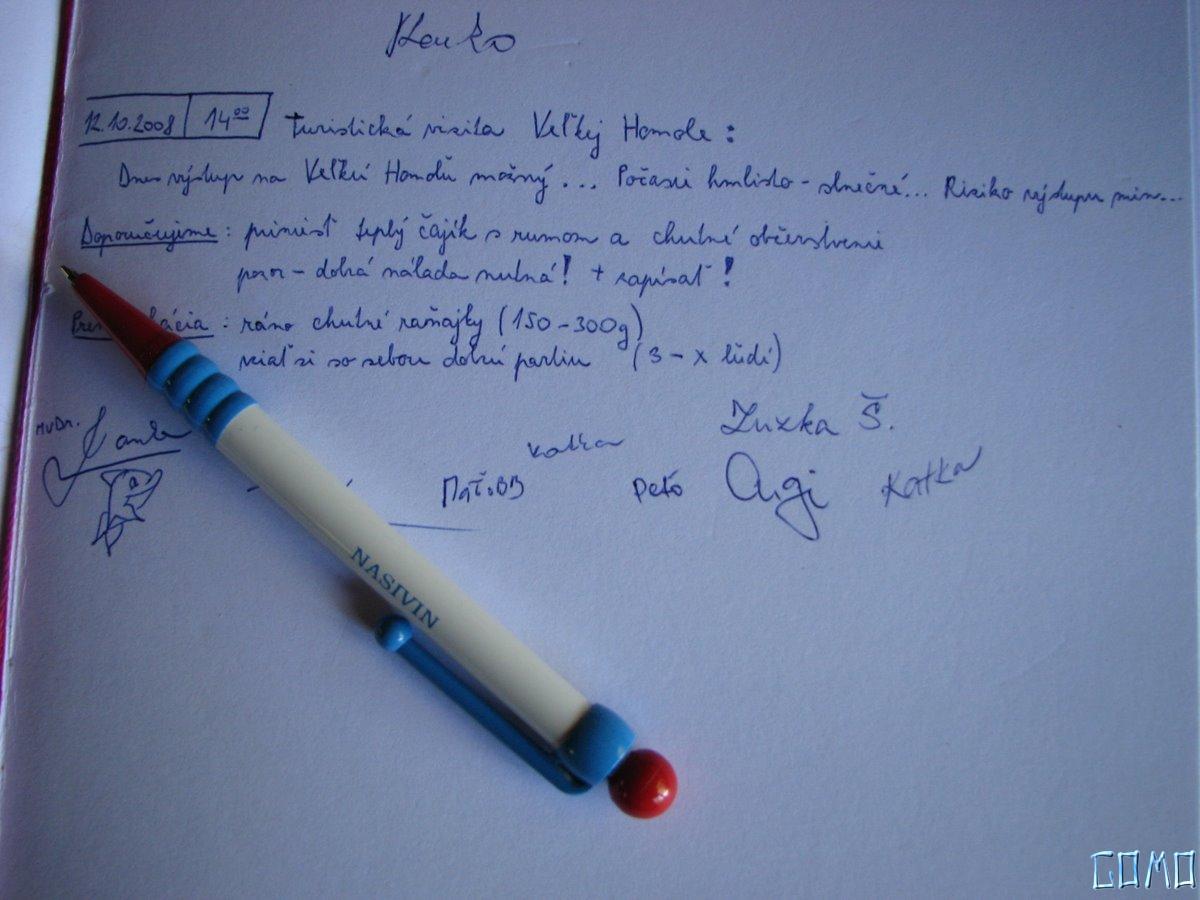 12.10.2008 14⁰⁰ Turistická vizita Veľkej Homole:
Dnes výstup na Veľkú Homolu možný... Počasie hmlisto - slnečné... Riziko výstupu min...
Doporučujeme: priniesť teplý čajík s rumom a chutné občerstvenie
pozor - dobrá nálada nutná! + zapísať!
: ráno chutné raňajky (150-300g)
vziať si so sebou dobrú partiu (3 - x ľudí)
MVDr.
Katka
Zuzka Š.
Peťo Ági Katka
NASIVIN
GOMO